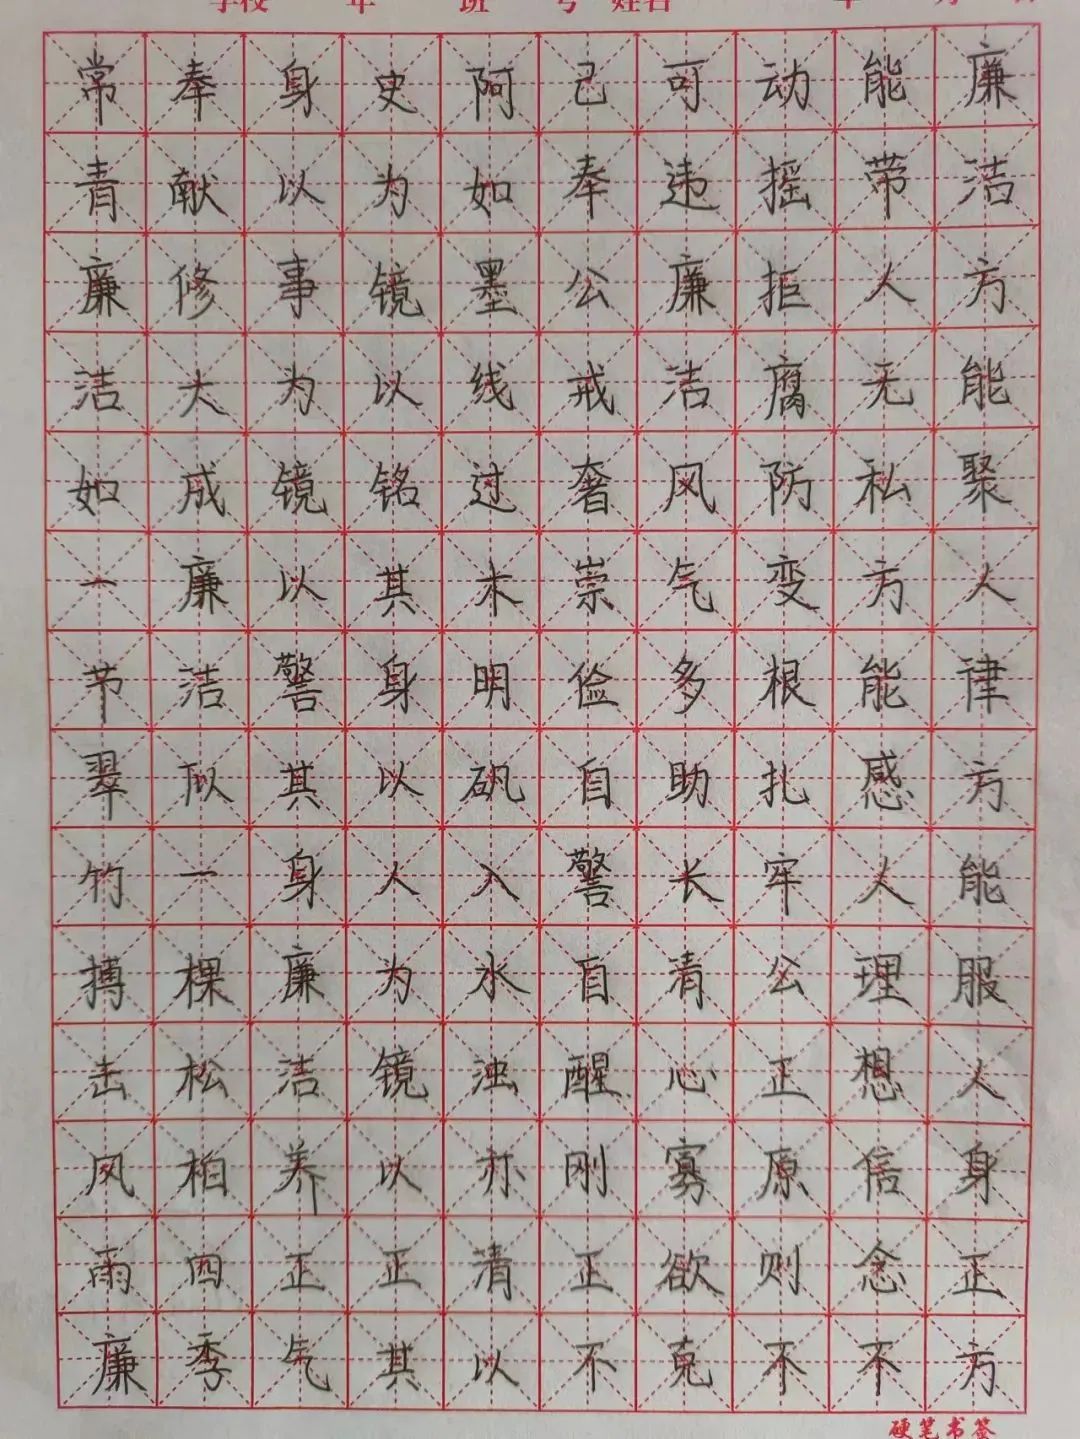 学校 年 班 号 姓名 年 月 日
廉洁方能聚人律方能服人身正方
能带人无私方能感人理想信念不
动摇拒腐防变根扎牢公正原则不
可违廉洁风气多助长清心寡欲克
己奉公戒奢崇俭自警自醒刚正不
阿如墨线过木明矾入水浊亦清以
史为镜以铭其身以人为镜以正其
身以事为镜以警其身廉洁养正气
奉献修大成廉洁似一棵松柏四季
常青廉洁如一节翠竹搏击风雨廉
硬笔书签